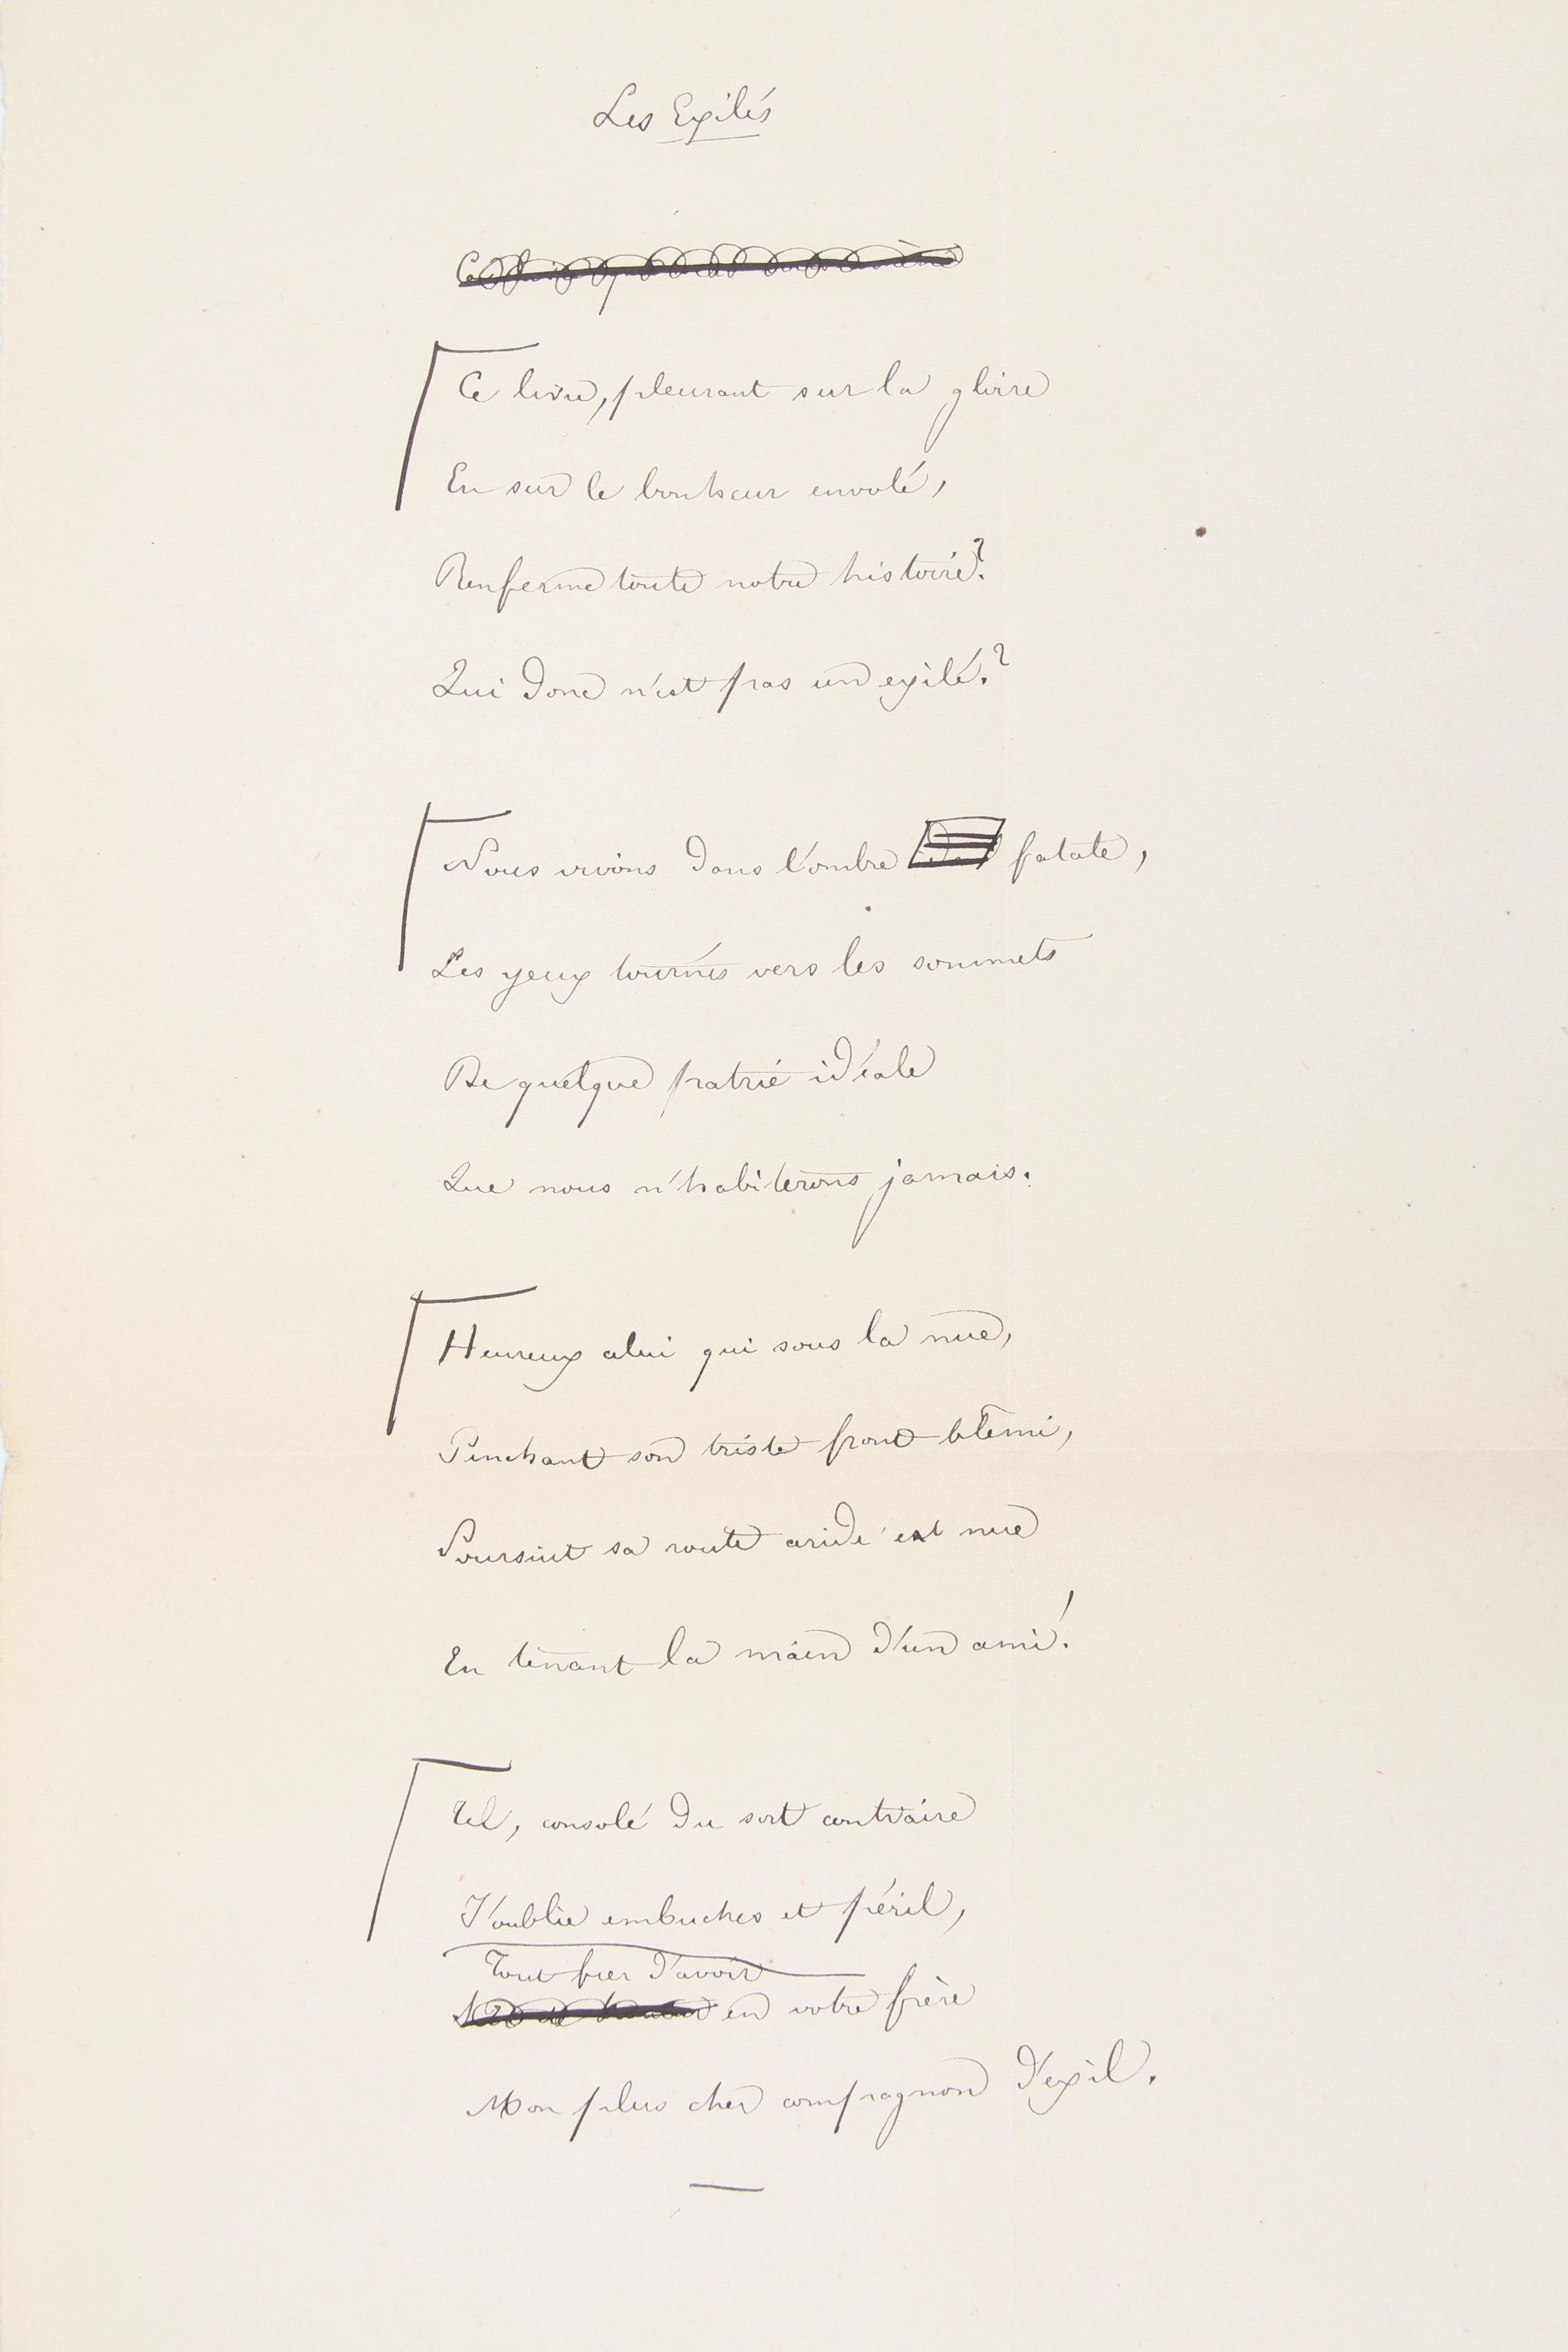 Les Exilés
Ce livre, pleurant sur la gloire
Et sur le bonheur envolé,
Renferme toute notre histoire?
Qui donc n'est pas un exilé?
Nous vivons dans l'ombre fatale,
Les yeux tournés vers les sommets
De quelque patrie idéale
Que nous n'habiterons jamais.
Heureux celui qui sous la nue,
Penchant son triste front blêmi,
Poursuit sa route aride et nue
En tenant la main d'un ami!
Tel, consolé du sort contraire
J'oublie embuches et péril,
Tout fier d'avoir
en votre frère
Mon plus cher compagnon d'exil.